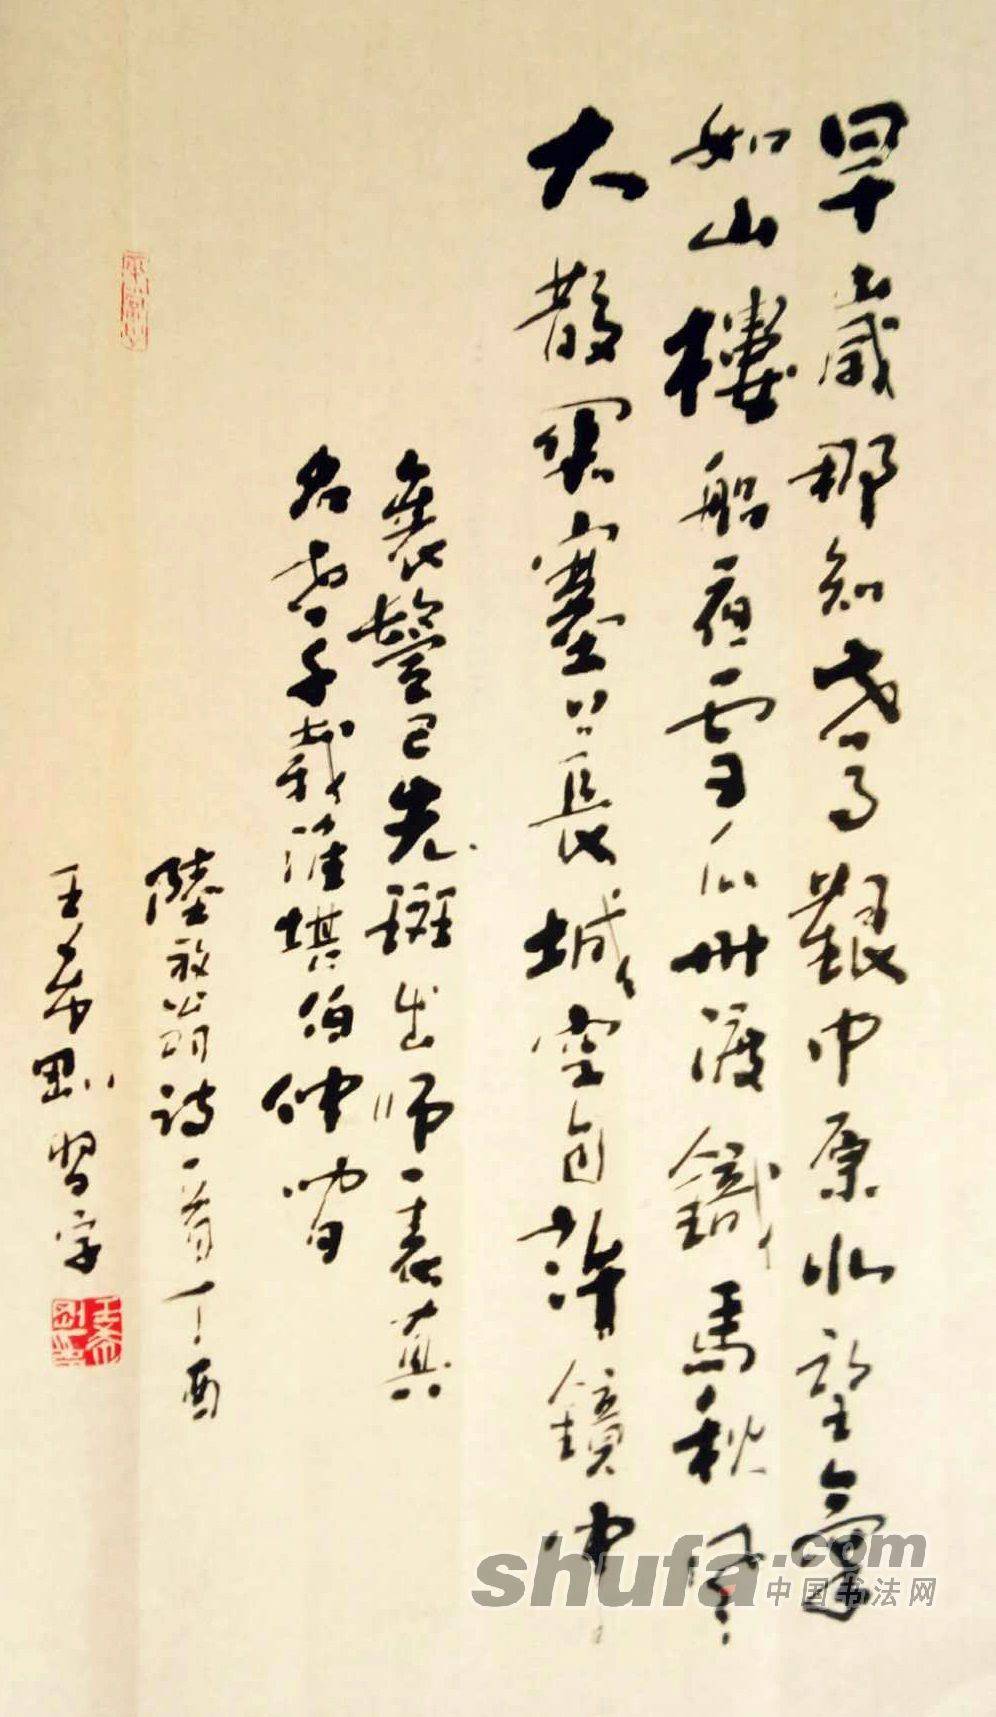 早歲那知世事艱中原北望氣
如山樓船夜雪瓜州渡鐵馬秋風
大散関塞上長城空自許鏡中
衰鬢已先斑出師一表真
名世千載誰堪伯仲間
陸放翁詩一首丁酉
王希剛習字
shufa.com
中国书法网